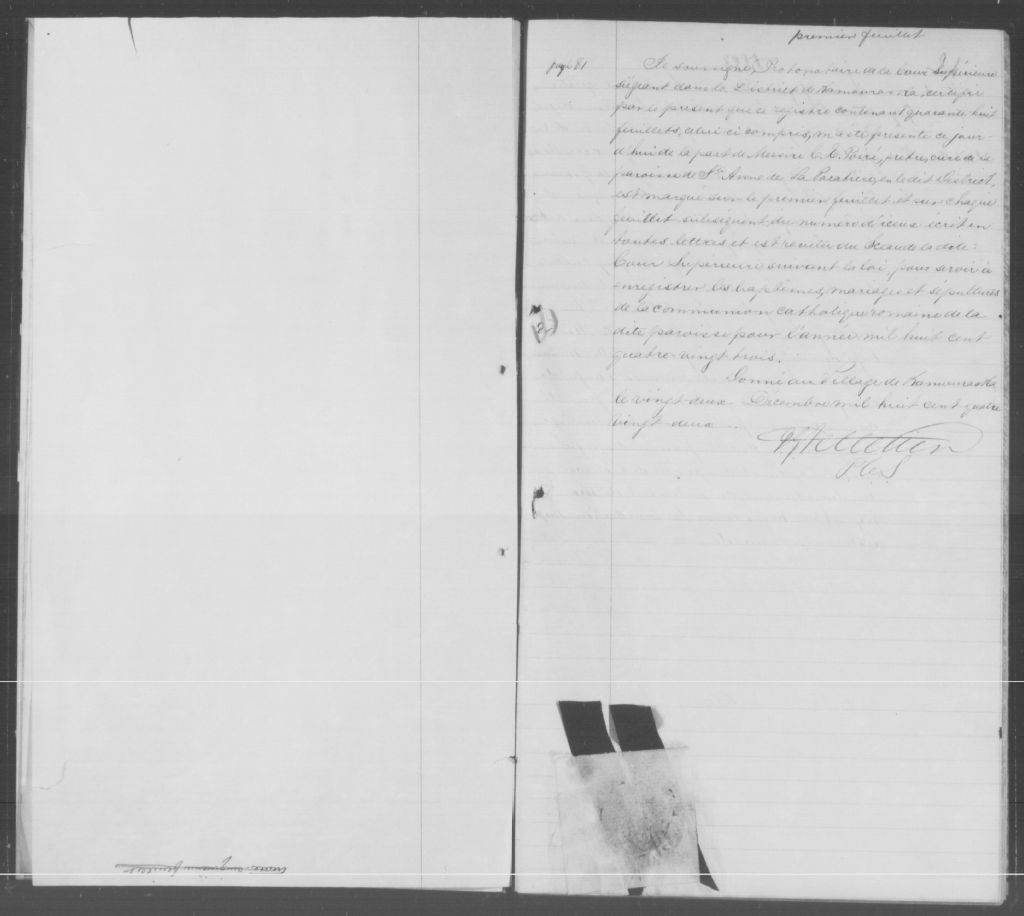 premier feuillet
page 81
Je soussigné, Protonotaire de la Cour Supérieure
siégeant dans le District de Kamouraska, certifie
par le présent que ce registre contenant quarante huit
feuillets, celui ci compris, m'a été présenté ce jour-
d'hui de la part de Messire C. E. Poiré, prêtre, curé de la
paroisse de Ste Anne de La Pocatière, en le dit District,
est marqué sur le premier feuillet et sur chaque
feuillet subséquent du numéro d'iceux écrit en
toutes lettres et est revêtu du Sceau de la dite
Cour Supérieure, suivant la loi, pour servir à
enregistrer les baptêmes, mariages et sépultures
de la communion catholique romaine de la
dite paroisse pour l'année mil huit cent
quatre-vingt trois.
Donné au Village de Kamouraska
le vingt-deux Décembre mil huit cent quatre
vingt-deux
Pelletier
P C S